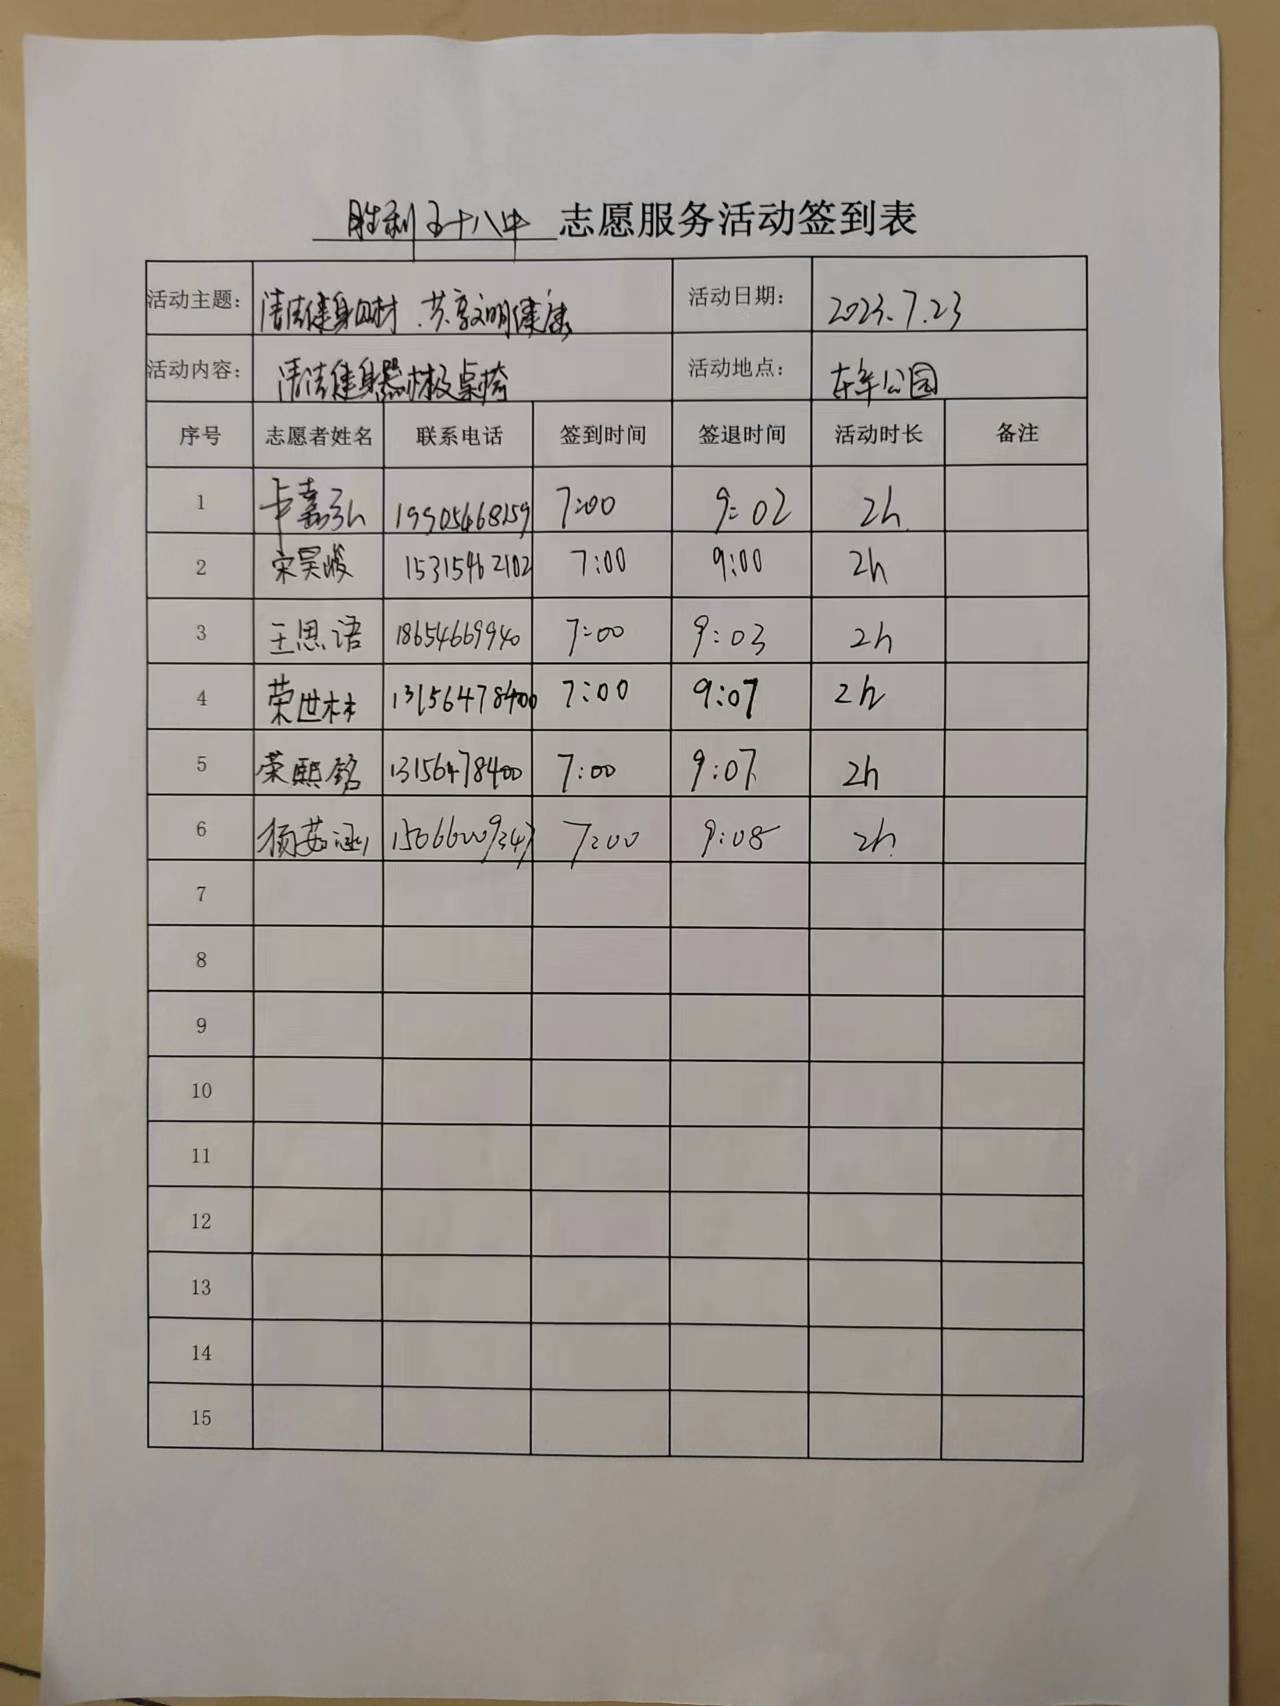 胜利五十八中 志愿服务活动签到表
活动主题: 清洁健身器材.共享文明健康 活动日期: 2023.7.23
活动内容: 清洁健身器材及桌椅 活动地点: 公园
序号 志愿者姓名 联系电话 签到时间 签退时间 活动时长 备注
1 卞嘉弘 19905468159 7:00 9:02 2h
2 宋昊峻 15315462102 7:00 9:00 2h
3 王思语 18654669940 7:00 9:03 2h
4 荣世林 13156478400 7:00 9:07 2h
5 荣熙铭 13156478400 7:00 9:07 2h
6 杨茹涵 7:00 9:08 2h
7
8
9
10
11
12
13
14
15